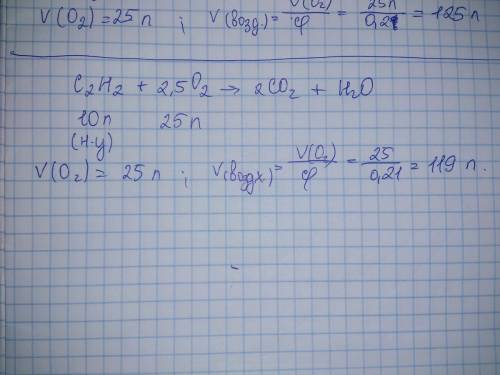 V(O₂)=25л ; V(возд.)= V(O₂)/φ = 25л/0,21 = 125л
C₂H₂ + 2,5O₂ → 2CO₂ + H₂O
10л 25л
(н.у)
V(O₂) = 25л ; V(воздх)= V(O₂)/φ = 25/0,21 = 119 л.